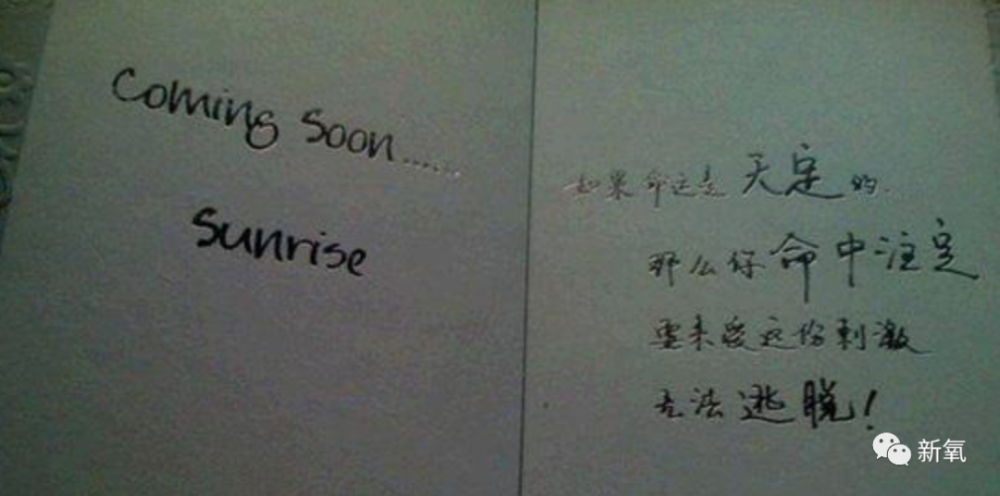 Coming Soon......
Sunrise
如果命运是天定的.
那么你命中注定
要来受这份刺激
无法逃脱！
新氧